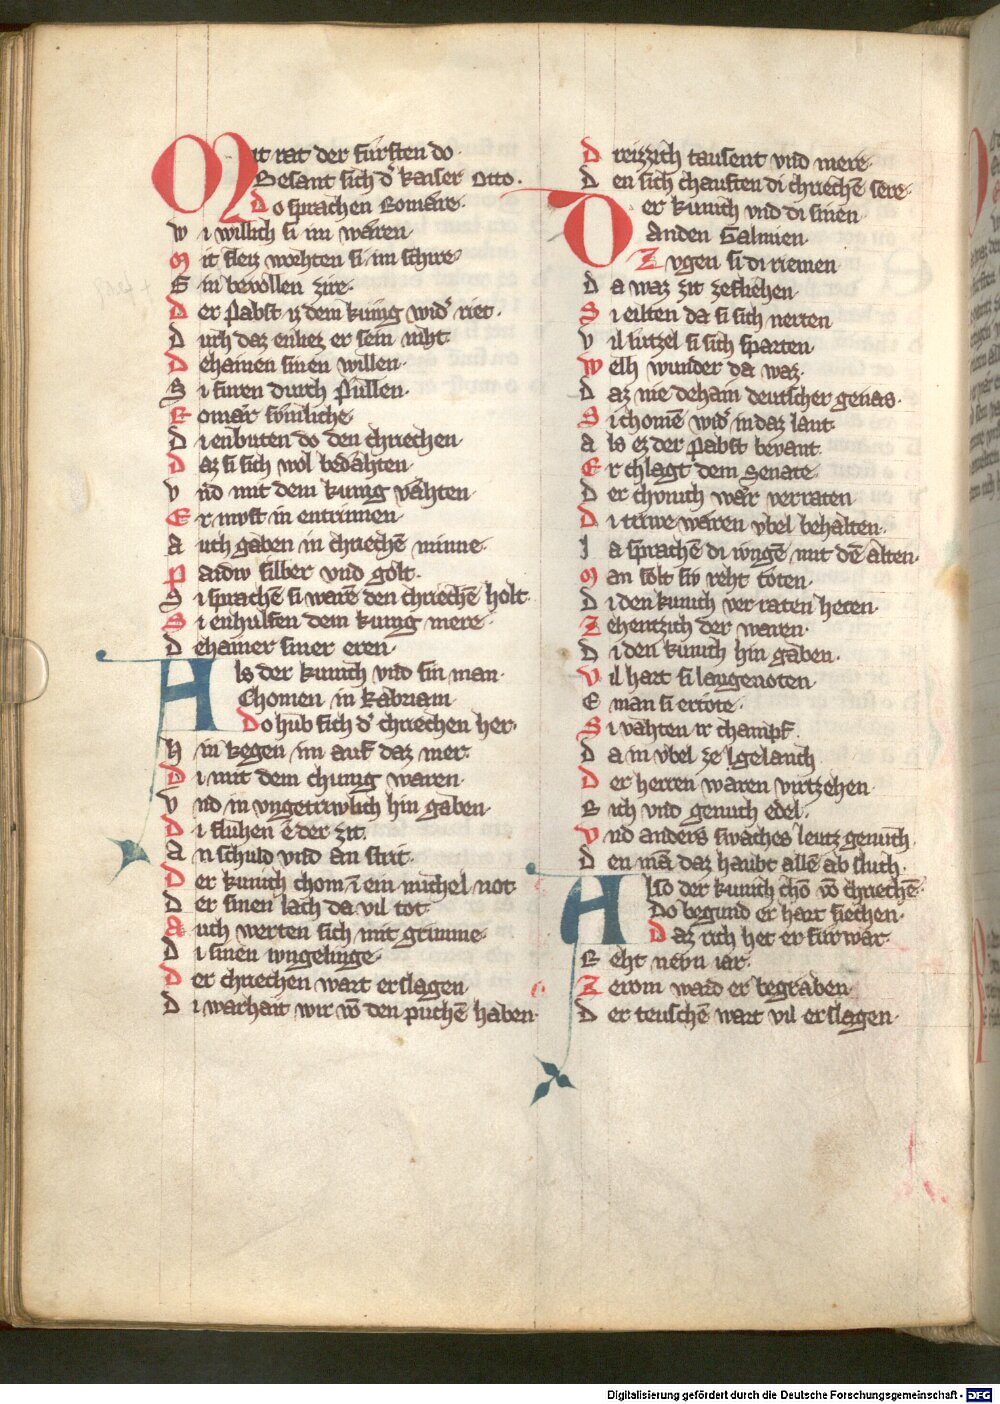 Mit rat der fürsten do·
Besant sich d᷑ kaiser Otto·
Do sprachen Romære·
Wi willich si im wæren·
Mit fleiz worhten si im schire·
Ein bevollen zire·
Der Pabst iz dem kunig wid᷑ riet·
Durch daz enliez er sein niht·
Dehainen sinen willen·
Si furen durch Püllen·
Romær fömliche·
Di enbuten do den chriechen·
Daz si sich wol bedæhten·
Vñd mit dem kunig væhten·
Er must in entrinnen·
Auch gaben in chriechē minne·
Paidiv silber vnd golt·
Si sprachē si warē den chriechē holt·
Si enhulfen dem kunig mere·
Dehainer siner eren·
Als der kunich vnd sin man·
Chomen in kabriam
Do hub sich d᷑ chriechen her·
Hin kegen im auf daz mer·
Di mit dem chunig waren·
Vnd in vngetriwlich hin gaben·
Di fluhen é der zit·
An schuld vnd an strit·
Der kunich chom ī ein michel not·
Der sinen lach da vil tot·
Auch werten sich mit grimme·
Di sinen iungelinge·
Der chriechen wart erslagen·
Di warhait wir vō den puchē haben·
Dreizzich tausent vnd mere·
Den sich chauften di chriechē sere·
Der kunich vnd di sinen
Anden Galmien·
Zvgen si di riemen
Da waz zit zefliehen·
Si eilten da si sich nerten
Vil lutzel si sich sparten
Welh wunder da waz·
Daz nie dehain deutscher genas·
Si chomē wid᷑ in daz lant·
Als ez der pabst bevant·
Er chlagt dem Senate·
Der chvnich wær verraten·
Di triwe wæren vbel behalten·
Ja sprachē di ivngē mit dē alten·
Man solt siv reht toten·
Di den kunich ver raten heten·
Zehentzich der waren·
Di den kunich hin gaben·
Vil hart si laugenoten·
E man si ertote·
Si væhten ir champf·
Da in vbel ze lgelanch
Der herren waren virtzehen·
Rich vnd genuch edel·
Vnd anders swaches leutz genuch·
Den mā daz haubt allē ab sluch·
Also der kunich chō vō chriechē·
Do begund er hart siechen·
Daz rich het er fur war·
Reht nevn iar·
Zerom ward er begraben·
Der teuschē wart vil erslagen·
Digitalisierung gefördert durch die Deutsche Forschungsgemeinschaft - DFG